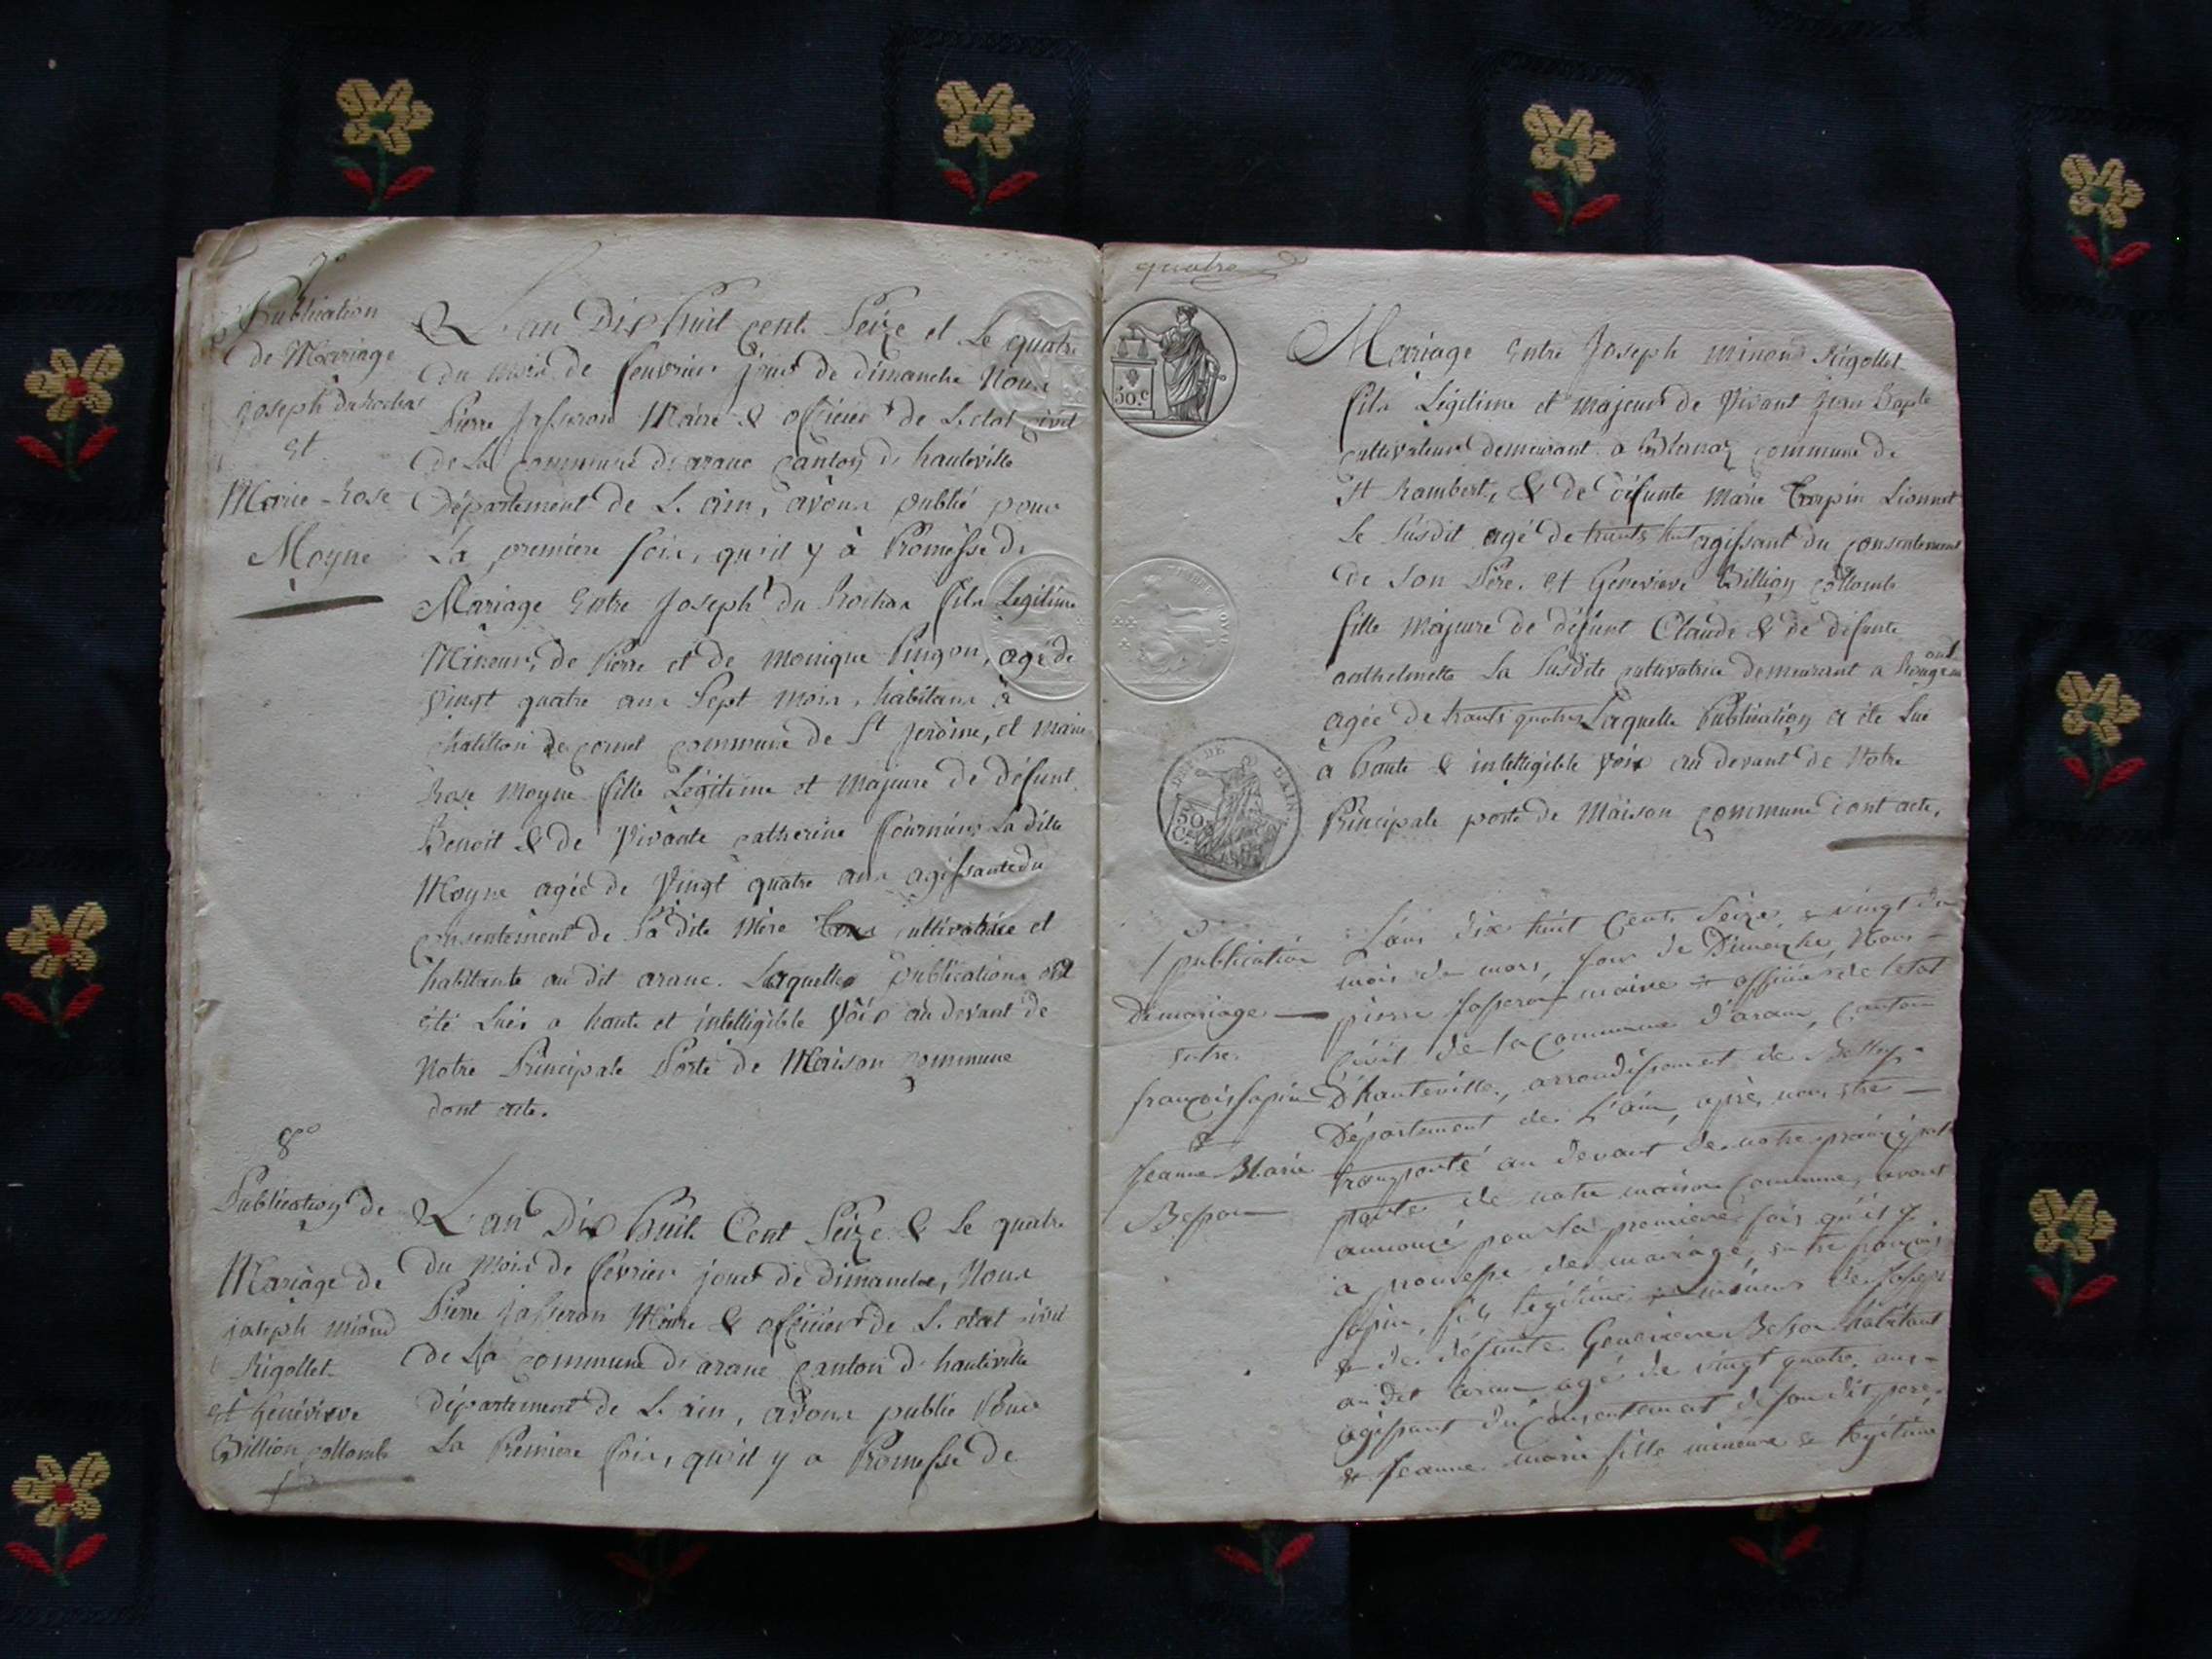 7°
Publication
de Mariage
joseph du Rochas
et
Marie-Rose
Moyne
L'an Dix huit cent Seize et Le quatre
du mois de fouvrier jour de dimanche Nous
Pierre Jasseron Maire & officier de L'etat civil
de La commune d'aranc canton d'hauteville
département de L'ain, avons publié pour
La premiere fois, qu'il y à Promesse de
Mariage Entre Joseph du Rochas fils Legitime
Mineur, de Pierre et de monique Pingon, agé de
Vingt quatre ans Sept mois, habitans à
chatillon de cornel commune de St jerôme, et marie
Rose Moyne fille Légitime et Majeure de défunt
Benoit & de Vivante catherine fournier La dite
Moyne agée de Vingt quatre ans agissante du
consentement de Sa dite Mère cultivatrice et
habitante au dit aranc. Laquelle publications
été Lues a haute et intelligible Voix au devant de
Notre Principale Porte de Maison commune
dont acte.
8°
Publication de
Mariage de
joseph miond
Rigollet
et Genéviève
Billion collomb
L'an Dix huit Cent Seize & Le quatre
du Mois de fevrier jour de dimanche, Nous
Pierre jasseron Maire & officier de L'etat civil
de La commune d'aranc canton d'hauteville
département de L'ain, avons publié Pour
La Premiere fois, qu'il y a Promesse de
quatre
50.c
Mariage Entre Joseph minond Rigollet
fils Légitime et majeur de Vivant Jean Bapte
cultivateur demeurant a commune de
St Rambert, & de défunte Marie Lionnet
Le Susdit agé de trante huit agissant du consentement
de Son Père. et Genevieve Billion collomb
fille Majeure de défunt Claude & de défunte
anthelmette La Susdite cultivatrice demeurant a Rougemont
agée de trante quatre Laquelle Publication a été Lue
a haute & intelligible Voix au devant de Notre
Principale porte de Maison commune dont acte,
DEPT DE L'AIN
50 C.
1 publication
de mariage
entre
françois sapin
&
Jeanne Marie
Besson
L'an dix huit Cent Seize & vingt du
mois de mars, jour de Dimanche, Nous
pierre Jasseron maire & officier de l'etat
Civil de la Commune d'aranc, Canton
d'hauteville, arrondissement de Belley
Département de L'ain, après nous être
transporté au devant de notre principale
porte de notre maison Commune, avons
annoncé pour la premiere fois qu'il y
a promesse de mariage, entre françois
sapin, fils legitime & mineur de Joseph
& de défunte Genevieve Besson habitant
au dit aranc agé de vingt quatre ans
agissant du Consentement de son dit pere
& Jeanne marie fille mineure & légitime